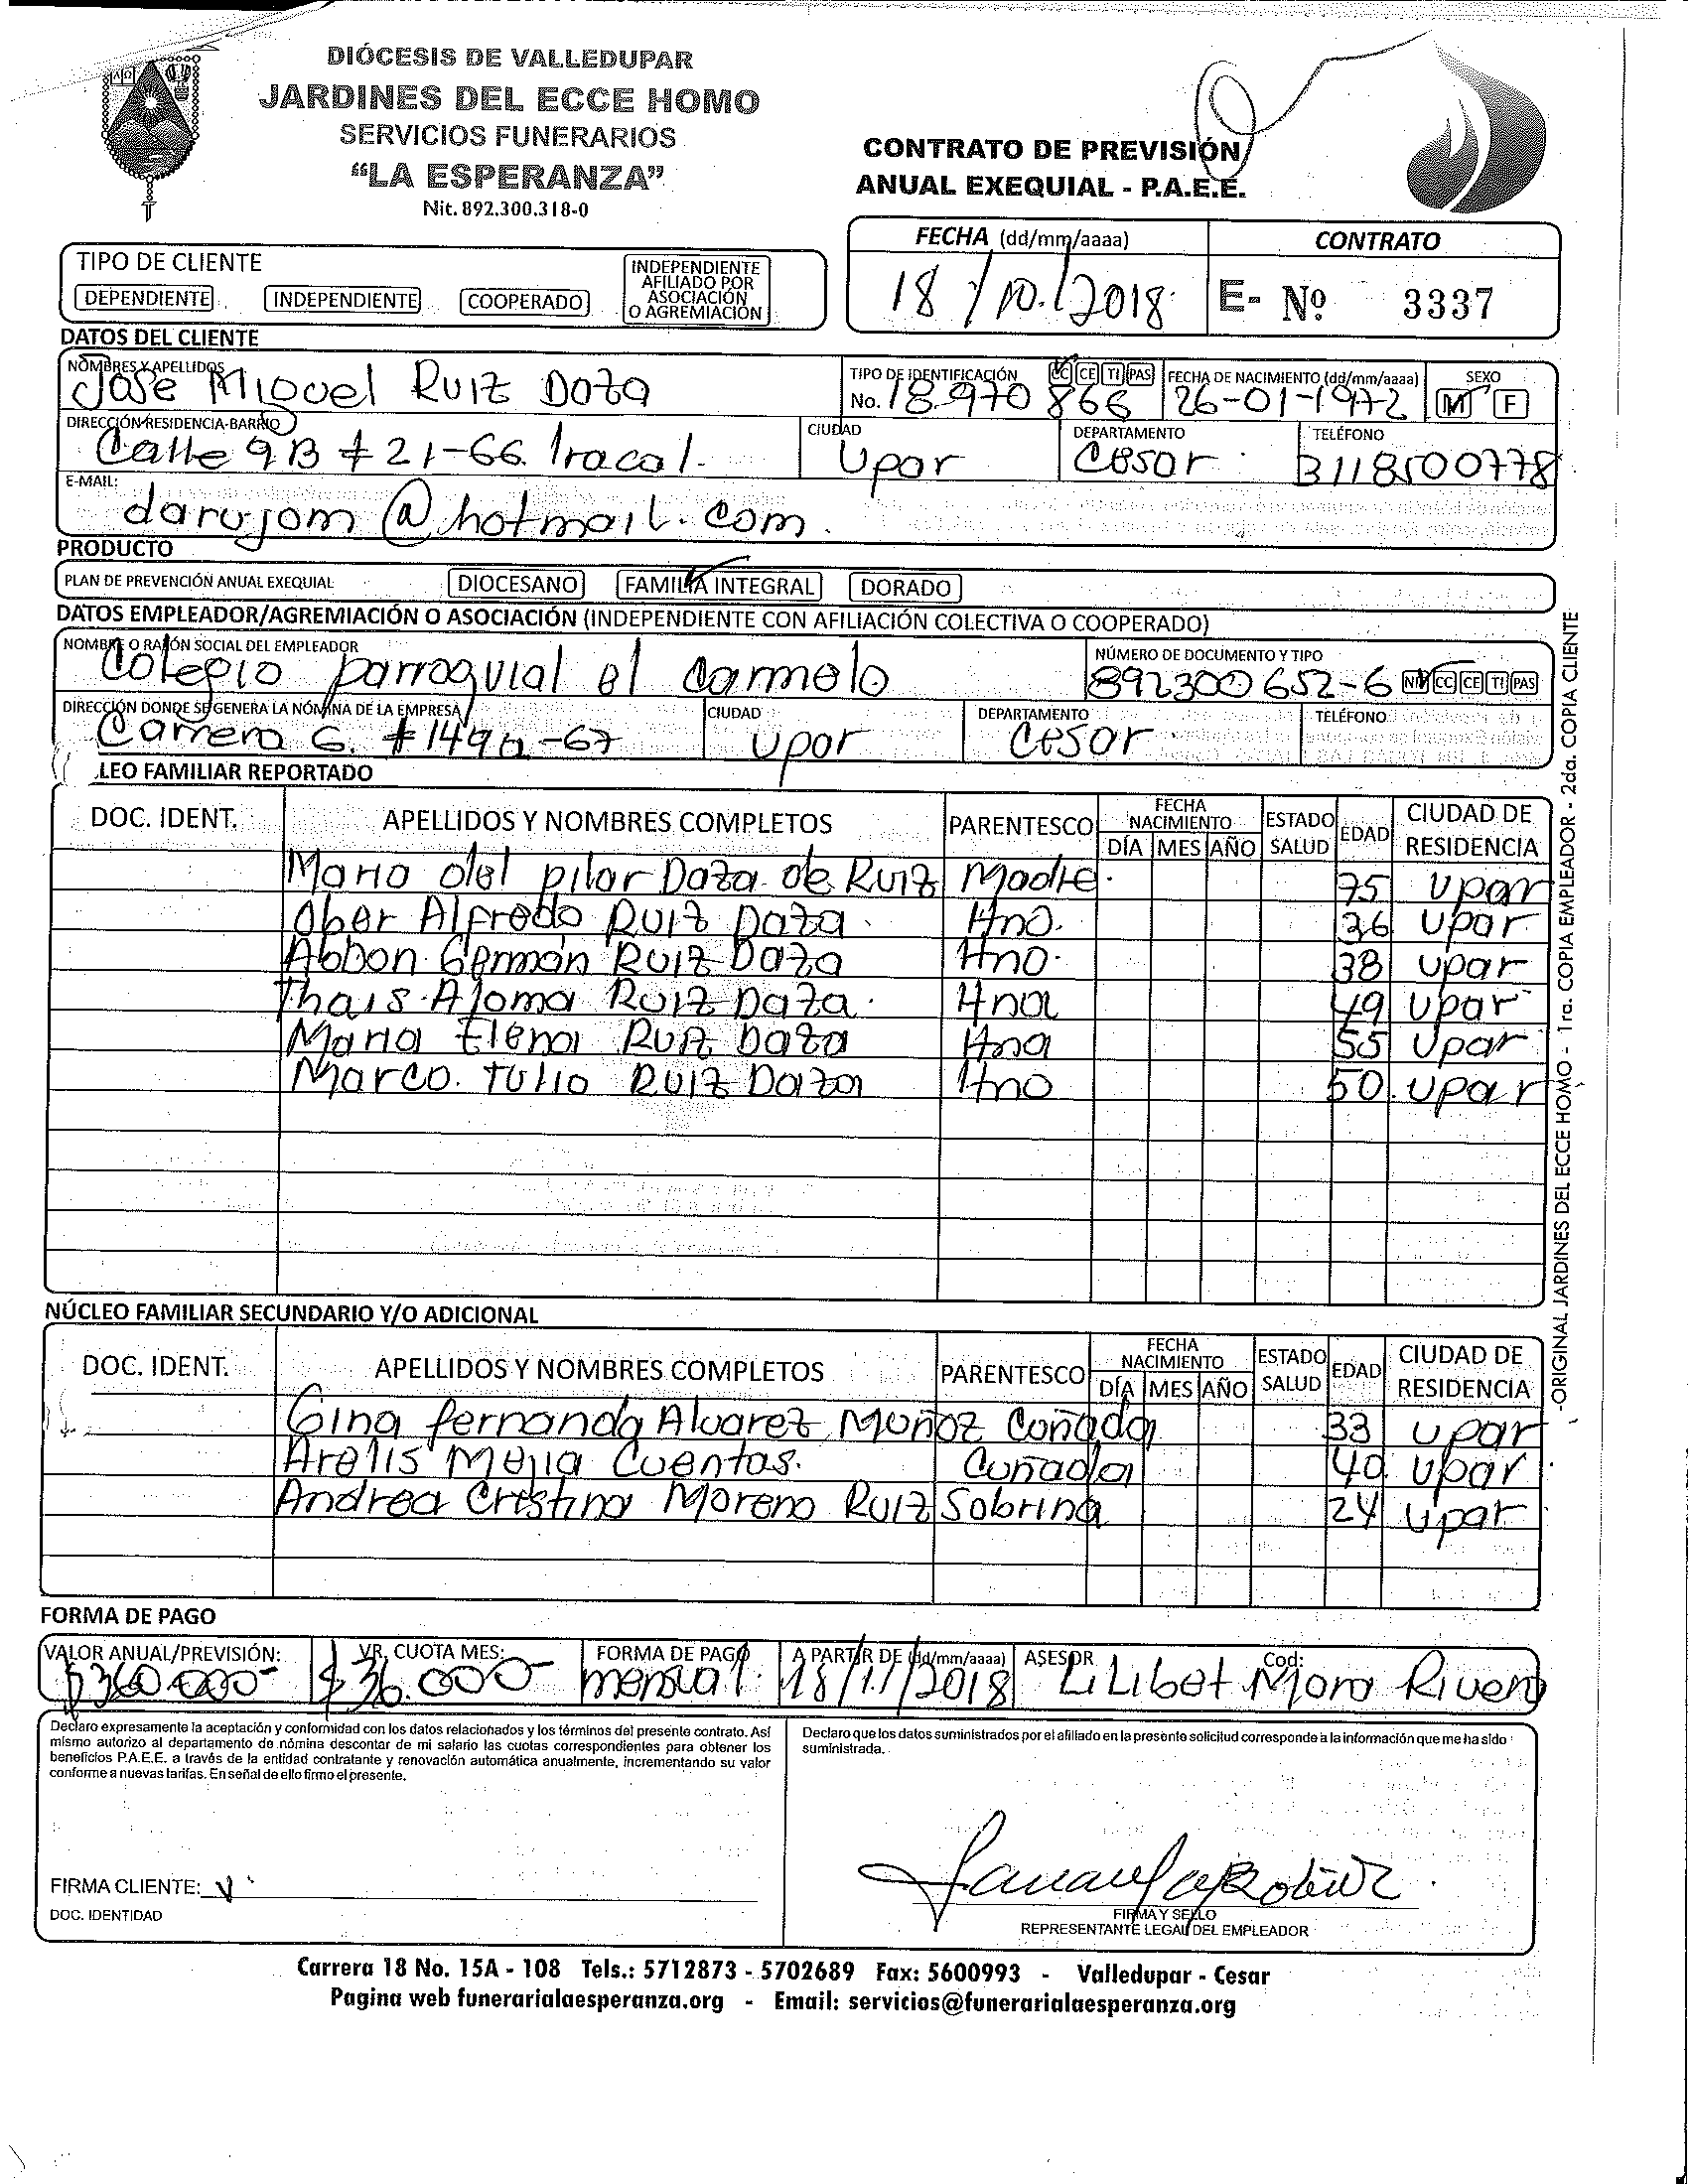 DIÓCESIS DE VALLEDUPAR
JARDINES DEL ECCE HOMO
SERVICIOS FUNERARIOS
“LA ESPERANZA”
Nit. 892.300.318-0
CONTRATO DE PREVISIÓN
ANUAL EXEQUIAL - P.A.E.E.
FECHA (dd/mm/aaaa) CONTRATO
18/10/2018 E- Nº 3337
TIPO DE CLIENTE
DEPENDIENTE INDEPENDIENTE COOPERADO INDEPENDIENTE AFILIADO POR ASOCIACIÓN O AGREMIACIÓN
DATOS DEL CLIENTE
NOMBRES Y APELLIDOS TIPO DE IDENTIFICACIÓN CC CE TI PAS FECHA DE NACIMIENTO (dd/mm/aaaa) SEXO
Jose Miguel Ruiz Daza No. 18.970 866 26-01-1972 M F
DIRECCIÓN RESIDENCIA-BARRIO CIUDAD DEPARTAMENTO TELÉFONO
Calle 9B # 21-66 Iracal. Upar Cesar 3118500778
E-MAIL:
darujom@hotmail.com.
PRODUCTO
PLAN DE PREVENCIÓN ANUAL EXEQUIAL DIOCESANO FAMILIA INTEGRAL DORADO
DATOS EMPLEADOR/AGREMIACIÓN O ASOCIACIÓN (INDEPENDIENTE CON AFILIACIÓN COLECTIVA O COOPERADO)
NOMBRE O RAZÓN SOCIAL DEL EMPLEADOR NÚMERO DE DOCUMENTO Y TIPO
Colegio parroquial el Carmelo 892300652-6 NIT CC CE TI PAS
DIRECCIÓN DONDE SE GENERA LA NÓMINA DE LA EMPRESA CIUDAD DEPARTAMENTO TELÉFONO
Carrera 6. -67 Upar Cesar
LEO FAMILIAR REPORTADO
DOC. IDENT. APELLIDOS Y NOMBRES COMPLETOS PARENTESCO FECHA NACIMIENTO DÍA MES AÑO ESTADO SALUD EDAD CIUDAD DE RESIDENCIA
Maria del pilar Daza de Ruiz Madre. 75 Upar
Ober Alfredo Ruiz Daza. Hno. 36 Upar
Abbon Germán Ruiz Daza Hno. 38 Upar
Thais Ruiz Daza. Hna 49 Upar
Maria Elena Ruiz Daza Hna 55 Upar
Marco. Tulio Ruiz Daza Hno 50 Upar
NÚCLEO FAMILIAR SECUNDARIO Y/O ADICIONAL
DOC. IDENT. APELLIDOS Y NOMBRES COMPLETOS PARENTESCO FECHA NACIMIENTO DÍA MES AÑO ESTADO SALUD EDAD CIUDAD DE RESIDENCIA
Gina fernanda Alvarez Muñoz Coñada 33 Upar
Arelis Mejia Cuentas. Cuñada 40 Upar
Andrea Cristina Moreno Ruiz Sobrina 24 Upar
FORMA DE PAGO
VALOR ANUAL/PREVISIÓN: VR. CUOTA MES: FORMA DE PAGO A PARTIR DE (dd/mm/aaaa) ASESOR Cod:
$360.000- $36.000- mensual. 18/11/2018 Lilibet Mora Rivera
Declaro expresamente la aceptación y conformidad con los datos relacionados y los términos del presente contrato. Así
mismo autorizo al departamento de nómina descontar de mi salario las cuotas correspondientes para obtener los
beneficios P.A.E.E. a través de la entidad contratante y renovación automática anualmente, incrementando su valor
conforme a nuevas tarifas. En señal de ello firmo el presente.
Declaro que los datos suministrados por el afiliado en la presente solicitud corresponde a la información que me ha sido
suministrada.
FIRMA CLIENTE:
DOC. IDENTIDAD
FIRMA Y SELLO
REPRESENTANTE LEGAL DEL EMPLEADOR
Carrera 18 No. 15A - 108 Tels.: 5712873 - 5702689 Fax: 5600993 - Valledupar - Cesar
Pagina web funerarialaesperanza.org - Email: servicios@funerarialaesperanza.org
-ORIGINAL JARDINES DEL ECCE HOMO - 1ra. COPIA EMPLEADOR - 2da. COPIA CLIENTE